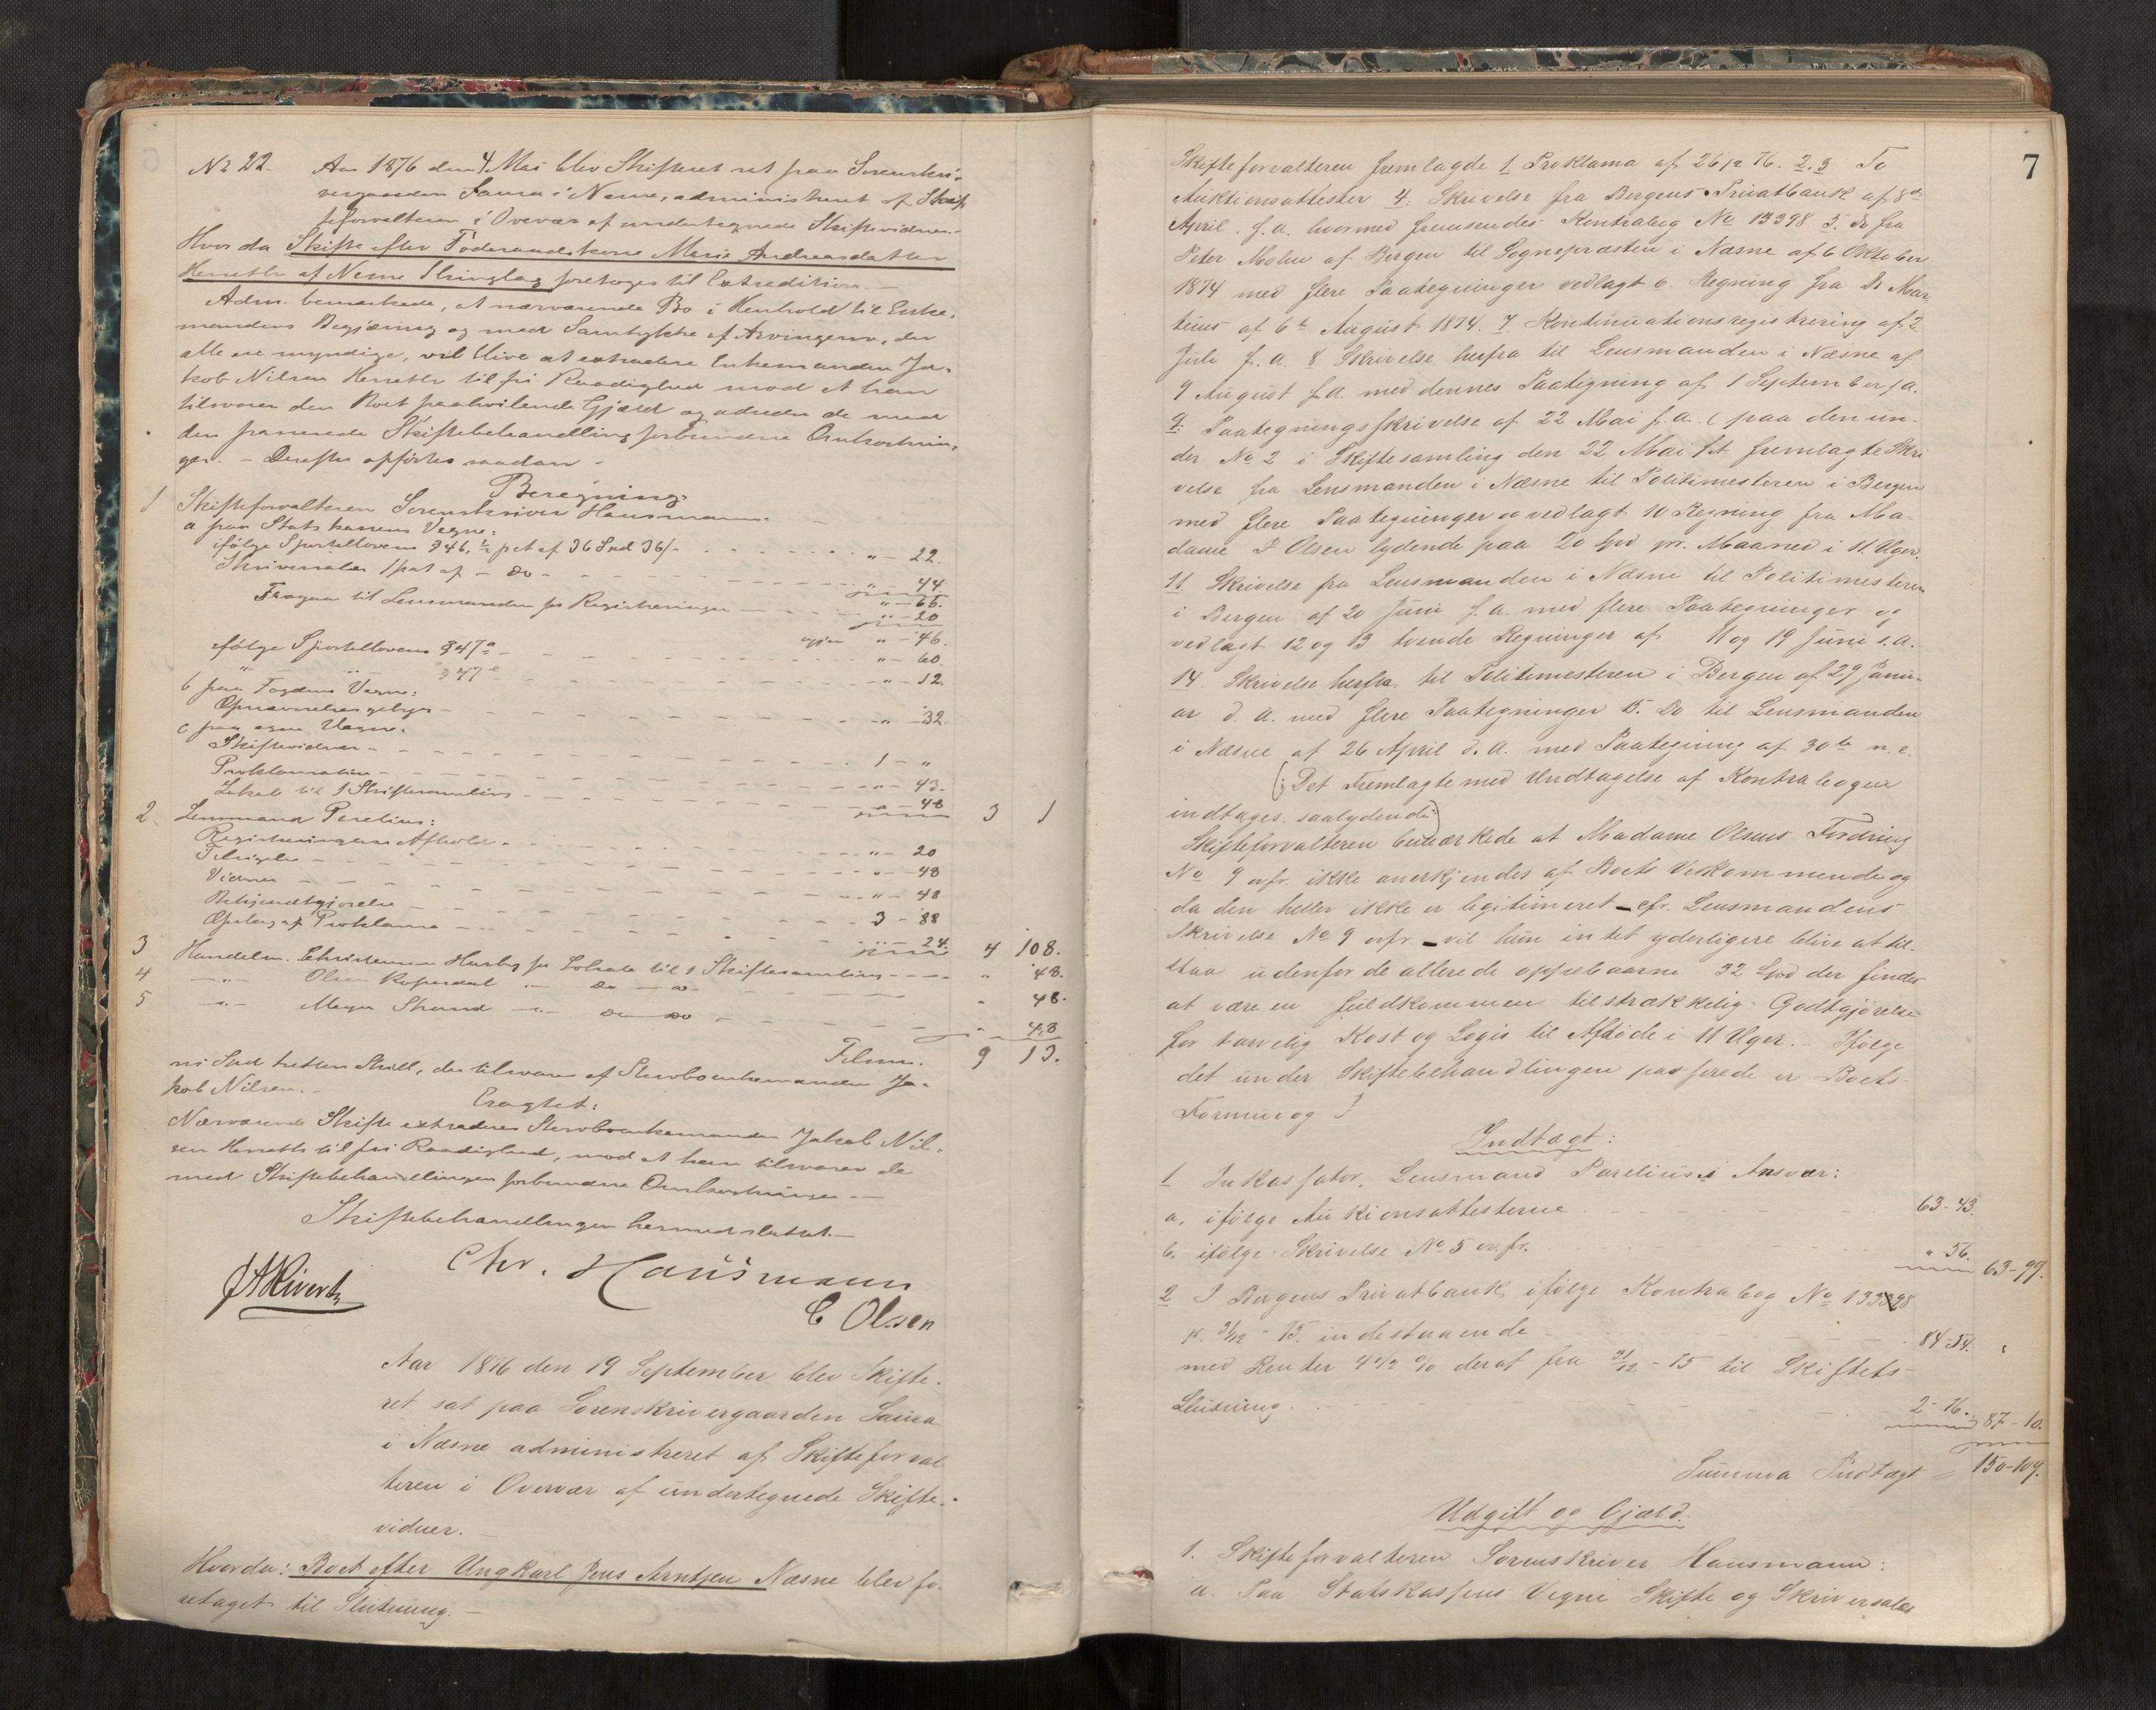 No 22. Aar 1876 den 4 Mai blev Skifteret sat paa Sorenskri-
vergaarden Saura i Nesne, administreret af Skif-
teforvalteren i Overvær af undertegnede Skiftevidner.
Hvor da Skifte efter Føderaadskone Marie Andreasdatter
Herseth af Nesne Thinglag foretoges til Extradition. -
Adm. bemærkede, at nærværende Bo i Henhold til Enke-
mandens Begjæring og med Samtykke af Arvingerne, der
alle ere myndige, vil blive at extradere Enkemanden Ja-
kob Nilsen Herseth til fri Raadighed mod at han
tilsvarer den Boet paahvilende Gjæld og udreder de med
den passerede Skiftebehandling forbundne Omkostnin-
ger. - Derefter opførtes saadan
Beregning:
1 Skifteforvalteren Sorenskriver Hausmann:
a paa Statskassens Vegne:
ifølge Sportellovens § 46, ½ pct af 36 Spd 36/- " - 22.
Skriversalær 1 pct af - Do - " - 44
" - 66.
Fragaar til Lensmanden for Registreringen " - 20
igjen " - 46.
ifølge Sportellovens § 47 a " - 60.
" " § 47 e " - 12.
b paa Fogdens Vegne:
Opnævnelsesgebyr " - 32.
c paa egne Vegne:
Skiftevidner 1 - "
Proklamation " - 43.
Lokale til 1 Skiftesamling " - 48 3 1
2. Lensmand Parelius:
Registreringens Afhold " - 20
Tilsigelse " - 48
Vidner " - 48
Bekjendtgjørelse 3 - 88
Opslag af Proklama " - 24. 4 108.
3 Handelsm. Christensen Husby for Lokale til 1 Skiftesamling " 48.
4 - " - Olsen - " - Do - o - " 48.
5 - " - Meyer Strand - " - Do Do " 48
Tilsam. 9 13.
ni Spd tretten Skill, der tilsvares af Stervboenkemanden Ja-
kob Nilsen. -
Eragtet:
Nærværende Skifte extraderes Stervboenkemanden Jakob Nil-
sen Herseth til fri Raadighed, mod at han tilsvarer de
med Skiftebehandlingen forbundne Omkostninger. -
Skiftebehandlingen hermed sluttet. -
Chr. Hausmann
C Olsen
Aar 1876 den 19 September blev Skifte-
ret sat paa Sorenskrivergaarden Saura
i Næsne administreret af Skifteforval
teren i Overvær af undertegnede Skifte-
vidner. -
Hvorda: Boet efter Ungkarl Jens Arntsen Næsne blev fo-
retaget til Slutning. -
7
Skifteforvalteren fremlagde 1 Proklama af 76. 2, 3 To
Auktionsattester 4. Skrivelse fra Bergens Privatbank af 8de
April f. a. hvormed fremsendes Kontrabog No 13398 5. Do fra
Peter Mohn af Bergen til Sognepræsten i Næsne af 6 Oktober
1874 med flere Paategninger vedlagt 6. Regning fra Dr Mar
tens af 6te August 1874. 7. Kontinuationsregistrering af 2
Juli f. a. 8 Skrivelse herfra til Lensmanden i Næsne af
9 August f. a. med dennes Paategning af 1 September f a.
9. Paategningsskrivelse af 22 Mai f. a. (paa den un-
der No 2 i Skiftesamling den 22 Mai f A fremlagte Skri
velse fra Lensmanden i Næsne til Politimesteren i Bergen
med flere Paategninger og vedlagt 10 Regning fra Ma-
dame J Olsen lydende paa 20 Spd pr. Maaned i 11 Uger.
11. Skrivelse fra Lensmanden i Næsne til Politimesteren
i Bergen af 20 Juni f. a. med flere Paategninger og
vedlagt 12 og 13 tvende Regninger af 11 og 19 Juni s. a.
14. Skrivelse herfra til Politimesteren i Bergen af 29 Janu-
ar d. a. med flere Paategninger 15. Do til Lensmanden
i Næsne af 26 April d. a. med Paategning af 30te n. e.
(: Det Fremlagte med Undtagelse af Kontrabogen
indtages saalydende:)
Skifteforvalteren bemærkede at Madame Olsens Fordring
No 9 ovfr. ikke anerkjendes af Boets Vedkommende og
da den heller ikke er legitimeret - cfr. Lensmandens
Skrivelse No 9 ovfr. - vil hun intet yderligere blive at til-
staa udenfor de allerede oppebaarne 32 Spd der findes
at være en fuldkommen tilstrækkelig Godtgjørelse
for tarvelig Kost og Logis til Afdøde i 11 Uger. - Ifølge
det under Skiftebehandlingen passerede er Boets
Formue og
Indtægt:
1 Inkassator, Lensmand Parelius's Ansvar:
a, ifølge Auktionsattesterne 63 - 43.
b. ifølge Skrivelse No 5 ovfr. " 56. 63 - 99.
2 I Bergens Privatbank ifølge Kontrabog No 13398
pr. 31/12 - 75. indestaaende 84 - 54.
med Renter 4 1/2 % deraf fra 31/12 - 75 til Skiftets
Slutning. 2 - 76. 87 - 10.
Summa Indtægt = 150 - 109.
Udgift og Gjæld.
1. Skifteforvalteren Sorenskriver Hausmann:
a. Paa Statskassens Vegne Skifte og Skriversalær